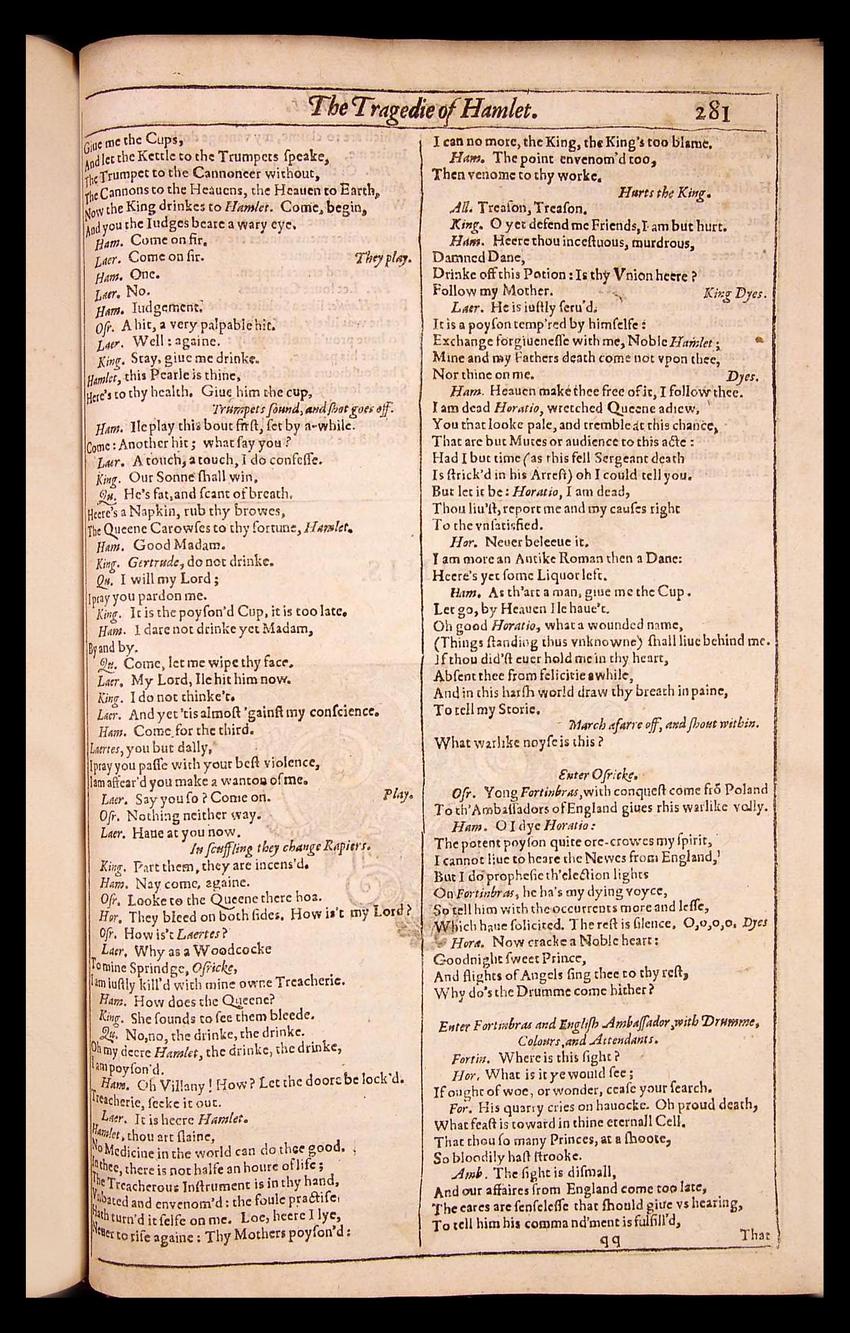 The Tragedie of Hamlet. 281
Giue me the Cups,
And let the Kettle to the Trumpets speake,
The Trumpet to the Cannoneer without,
The Cannons to the Heauens, the Heauen to Earth,
Now the King drinkes to Hamlet. Come, begin,
And you the Iudges beare a wary eye.
Ham. Come on sir.
Laer. Come on sir. They play.
Ham. One.
Laer. No.
Ham. Iudgement.
Osr. A hit, a very palpable hit.
Laer. Well : againe.
King. Stay, giue me drinke.
Hamlet, this Pearle is thine,
Here's to thy health. Giue him the cup,
Trumpets sound, and shot goes off.
Ham. Ile play this bout first, set by a-while.
Come : Another hit ; what say you ?
Laer. A touch, a touch, I do confesse.
King. Our Sonne shall win.
Qu. He's fat, and scant of breath.
Heere's a Napkin, rub thy browes,
The Queene Carowses to thy fortune, Hamlet.
Ham. Good Madam.
King. Gertrude, do not drinke.
Qu. I will my Lord ;
I pray you pardon me.
King. It is the poyson'd Cup, it is too late.
Ham. I dare not drinke yet Madam,
By and by.
Qu. Come, let me wipe thy face.
Laer. My Lord, Ile hit him now.
King. I do not thinke't.
Laer. And yet 'tis almost 'gainst my conscience.
Ham. Come for the third.
Laertes, you but dally,
I pray you passe with your best violence,
I am affear'd you make a wanton of me.
Laer. Say you so ? Come on. Play.
Osr. Nothing neither way.
Laer. Haue at you now.
In scuffling they change Rapiers.
King. Part them, they are incens'd.
Ham. Nay come, againe.
Osr. Looke to the Queene there hoa.
Hor. They bleed on both sides. How is't my Lord?
Osr. How is't Laertes ?
Laer. Why as a Woodcocke
To mine Sprindge, Osricke,
I am iustly kill'd with mine owne Treacherie.
Ham. How does the Queene?
King. She sounds to see them bleede.
Qu. No, no, the drinke, the drinke.
Oh my deere Hamlet, the drinke, the drinke,
I am poyson'd.
Ham. Oh Villany ! How ? Let the doore be lock'd.
Treacherie, seeke it out.
Laer. It is heere Hamlet.
Hamlet, thou art slaine,
No Medicine in the world can do thee good.
In thee, there is not halfe an houre of life ;
The Treacherous Instrument is in thy hand,
Vnbated and envenom'd : the foule practise
Hath turn'd it selfe on me. Loe, heere I lye,
Neuer to rise againe : Thy Mothers poyson'd :
I can no more, the King, the King's too blame.
Ham. The point envenom'd too,
Then venome to thy worke.
Hurts the King.
All. Treason, Treason.
King. O yet defend me Friends, I am but hurt.
Ham. Heere thou incestuous, murdrous,
Damned Dane,
Drinke off this Potion : Is thy Vnion heere ?
Follow my Mother. King Dyes.
Laer. He is iustly seru'd.
It is a poyson temp'red by himselfe :
Exchange forgiuenesse with me, Noble Hamlet ;
Mine and my Fathers death come not vpon thee,
Nor thine on me. Dyes.
Ham. Heauen make thee free of it, I follow thee.
I am dead Horatio, wretched Queene adiew,
You that looke pale, and tremble at this chance,
That are but Mutes or audience to this acte :
Had I but time (as this fell Sergeant death
Is strick'd in his Arrest) oh I could tell you.
But let it be : Horatio, I am dead,
Thou liu'st, report me and my causes right
To the vnsatisfied.
Hor. Neuer beleeue it.
I am more an Antike Roman then a Dane:
Heere's yet some Liquor left.
Ham. As th'art a man, giue me the Cup.
Let go, by Heauen Ile haue't.
Oh good Horatio, what a wounded name,
(Things standing thus vnknowne) shall liue behind me.
If thou did'st euer hold me in thy heart,
Absent thee from felicitie awhile,
And in this harsh world draw thy breath in paine,
To tell my Storie.
March afarre off, and shout within.
What warlike noyse is this ?
Enter Osricke.
Osr. Yong Fortinbras, with conquest come frō Poland
To th'Ambassadors of England giues rhis warlike volly.
Ham. O I dye Horatio :
The potent poyson quite ore-crowes my spirit,
I cannot liue to heare the Newes from England,
But I do prophesie th'election lights
On Fortinbras, he ha's my dying voyce,
So tell him with the occurrents more and lesse,
Which haue solicited. The rest is silence. O,o,o,o. Dyes
Hora. Now cracke a Noble heart :
Goodnight sweet Prince,
And flights of Angels sing thee to thy rest,
Why do's the Drumme come hither ?
Enter Fortinbras and English Ambassador, with Drumme,
Colours, and Attendants.
Fortin. Where is this sight ?
Hor. What is it ye would see ;
If ought of woe, or wonder, cease your search.
For. His quarry cries on hauocke. Oh proud death,
What feast is toward in thine eternall Cell.
That thou so many Princes, at a shoote,
So bloodily hast strooke.
Amb. The sight is dismall,
And our affaires from England come too late,
The eares are senselesse that should giue vs hearing,
To tell him his command'ment is fulfill'd,
qq That